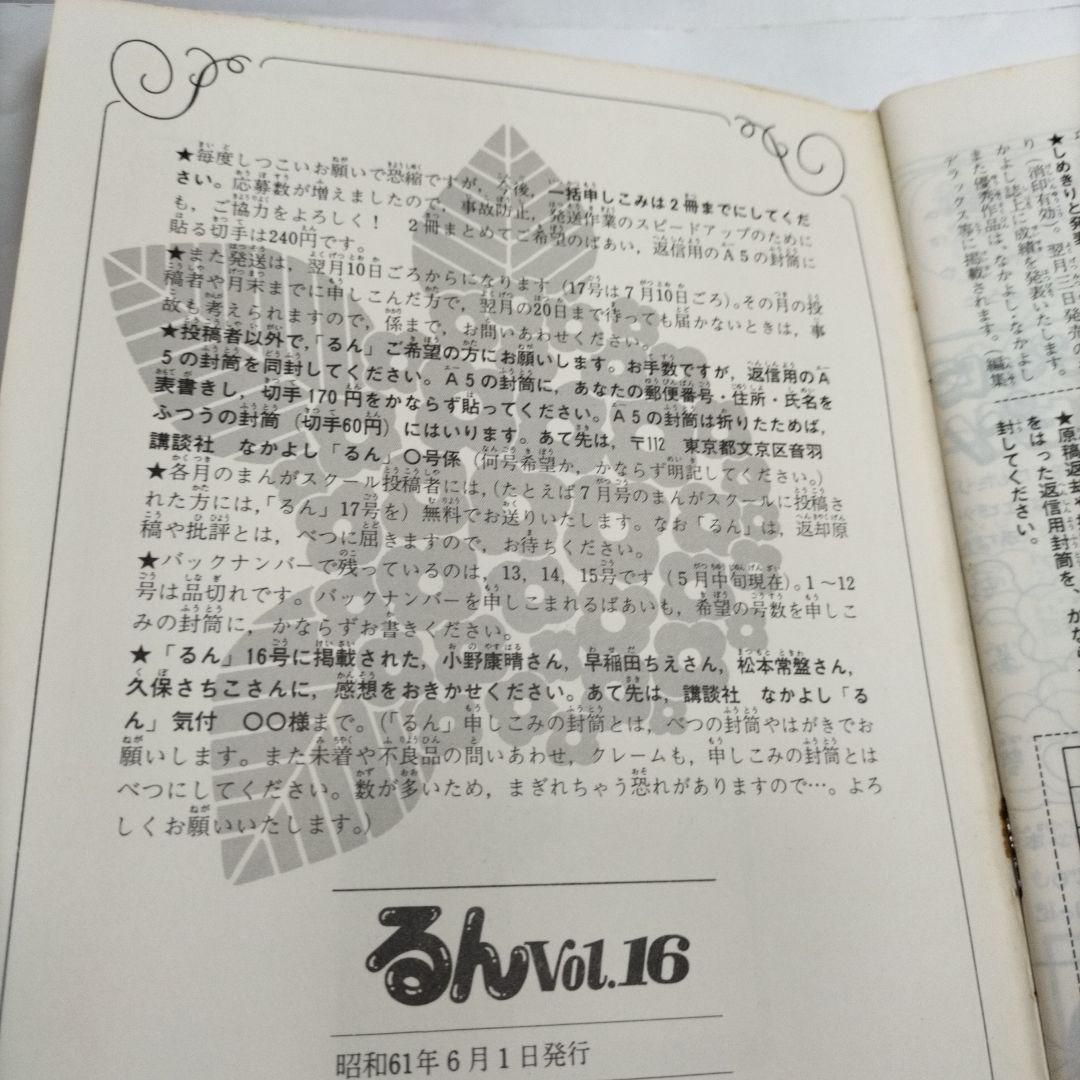 ★毎度しつこいお願いで恐縮ですが，今後，一括申しこみは2冊までにしてくだ
さい。応募数が増えましたので，事故防止，発送作業のスピードアップのために
も，ご協力をよろしく！　2冊まとめてご希望のばあい，返信用のA5の封筒に
貼る切手は240円です。
★また発送は，翌月10日ごろからになります（17号は7月10日ごろ）。その月の投
稿者や月末までに申しこんだ方で，翌月の20日まで待っても届かないときは，事
故も考えられますので，係まで，お問いあわせください。
★投稿者以外で，「るん」ご希望の方にお願いします。お手数ですが，返信用のA
5の封筒を同封してください。A5の封筒に，あなたの郵便番号・住所・氏名を
表書きし，切手170円をかならず貼ってください。A5の封筒は折りたためば，
ふつうの封筒（切手60円）にはいります。あて先は，〒112　東京都文京区音羽
講談社　なかよし「るん」○号係（何号希望か，かならず明記してください。）
★各月のまんがスクール投稿者には，（たとえば7月号のまんがスクールに投稿さ
れた方には，「るん」17号を）無料でお送りいたします。なお「るん」は，返却原
稿や批評とは，べつに届きますので，お待ちください。
★バックナンバーで残っているのは，13，14，15号です（5月中旬現在）。1～12
号は品切れです。バックナンバーを申しこまれるばあいも，希望の号数を申しこ
みの封筒に，かならずお書きください。
★「るん」16号に掲載された，小野康晴さん，早稲田ちえさん，松本常盤さん，
久保さちこさんに，感想をおきかせください。あて先は，講談社　なかよし「る
ん」気付　○○様まで。（「るん」申しこみの封筒とは，べつの封筒やはがきでお
願いします。また未着や不良品の問いあわせ，クレームも，申しこみの封筒とは
べつにしてください。数が多いため，まぎれちゃう恐れがありますので…。よろ
しくお願いいたします。）
るんVol.16
昭和61年6月1日発行
★しめきりと発表
り（消印有効）。翌月三日発売の
かよし誌上に成績を発表いたします。
また優秀作品は、なかよし・なかよし
デラックス等に掲載されます。（編集
★原稿返却
をはった返信用封筒を、かなら
封してください。